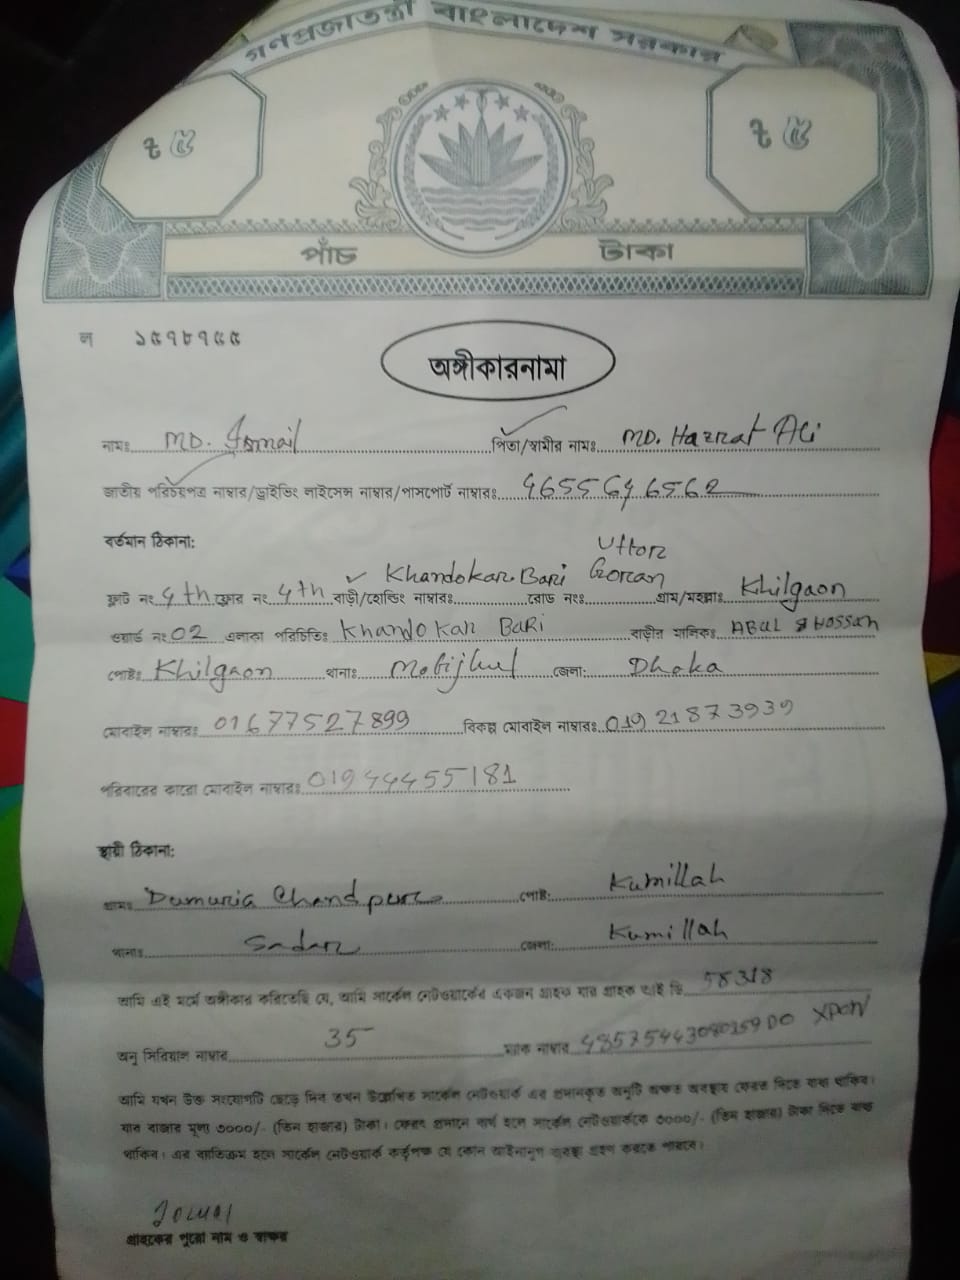 গণপ্রজাতন্ত্রী বাংলাদেশ সরকার
৳ ৫ ৳ ৫
পাঁচ টাকা
ল ১৫৭৮৭৫৫
অঙ্গীকারনামা
নামঃ MD. Ismail পিতা/স্বামীর নামঃ MD. Hazrat Ali
জাতীয় পরিচয়পত্র নাম্বার/ড্রাইভিং লাইসেন্স নাম্বার/পাসপোর্ট নাম্বারঃ
বর্তমান ঠিকানা:
Uttor
Khandokar Bari Goran
ফ্লাট নং 4th ফ্লোর নং 4th বাড়ী/হোল্ডিং নাম্বারঃ রোড নংঃ গ্রাম/মহল্লাঃ Khilgaon
ওয়ার্ড নংঃ 02 এলাকা পরিচিতিঃ Khandokar Bari বাড়ীর মালিকঃ ABUL HOSSAN
পোষ্টঃ Khilgaon থানাঃ জেলা: Dhaka
মোবাইল নাম্বারঃ 01677527899 বিকল্প মোবাইল নাম্বারঃ 01921873939
পরিবারের কারো মোবাইল নাম্বারঃ 01944455181
স্থায়ী ঠিকানা:
গ্রামঃ Damuria Chandpur পোষ্ট: Kumillah
থানাঃ Sadar জেলা: Kumillah
আমি এই মর্মে অঙ্গীকার করিতেছি যে, আমি সার্কেল নেটওয়ার্কের একজন গ্রাহক যার গ্রাহক আই ডি 58318
অনু সিরিয়াল নাম্বার 35 ম্যাক নাম্বার XPON
আমি যখন উক্ত সংযোগটি ছেড়ে দিব তখন উল্লেখিত সার্কেল নেটওয়ার্ক এর প্রদানকৃত অনুটি অক্ষত অবস্থায় ফেরত দিতে বাধ্য থাকিব।
যার বাজার মূল্য ৩০০০/- (তিন হাজার) টাকা। ফেরৎ প্রদানে ব্যর্থ হলে সার্কেল নেটওয়ার্ককে ৩০০০/- (তিন হাজার) টাকা দিতে বাধ্য
থাকিব। এর ব্যতিক্রম হলে সার্কেল নেটওয়ার্ক কর্তৃপক্ষ যে কোন আইনানুগ ব্যবস্থা গ্রহণ করতে পারবে।
গ্রাহকের পুরো নাম ও স্বাক্ষর